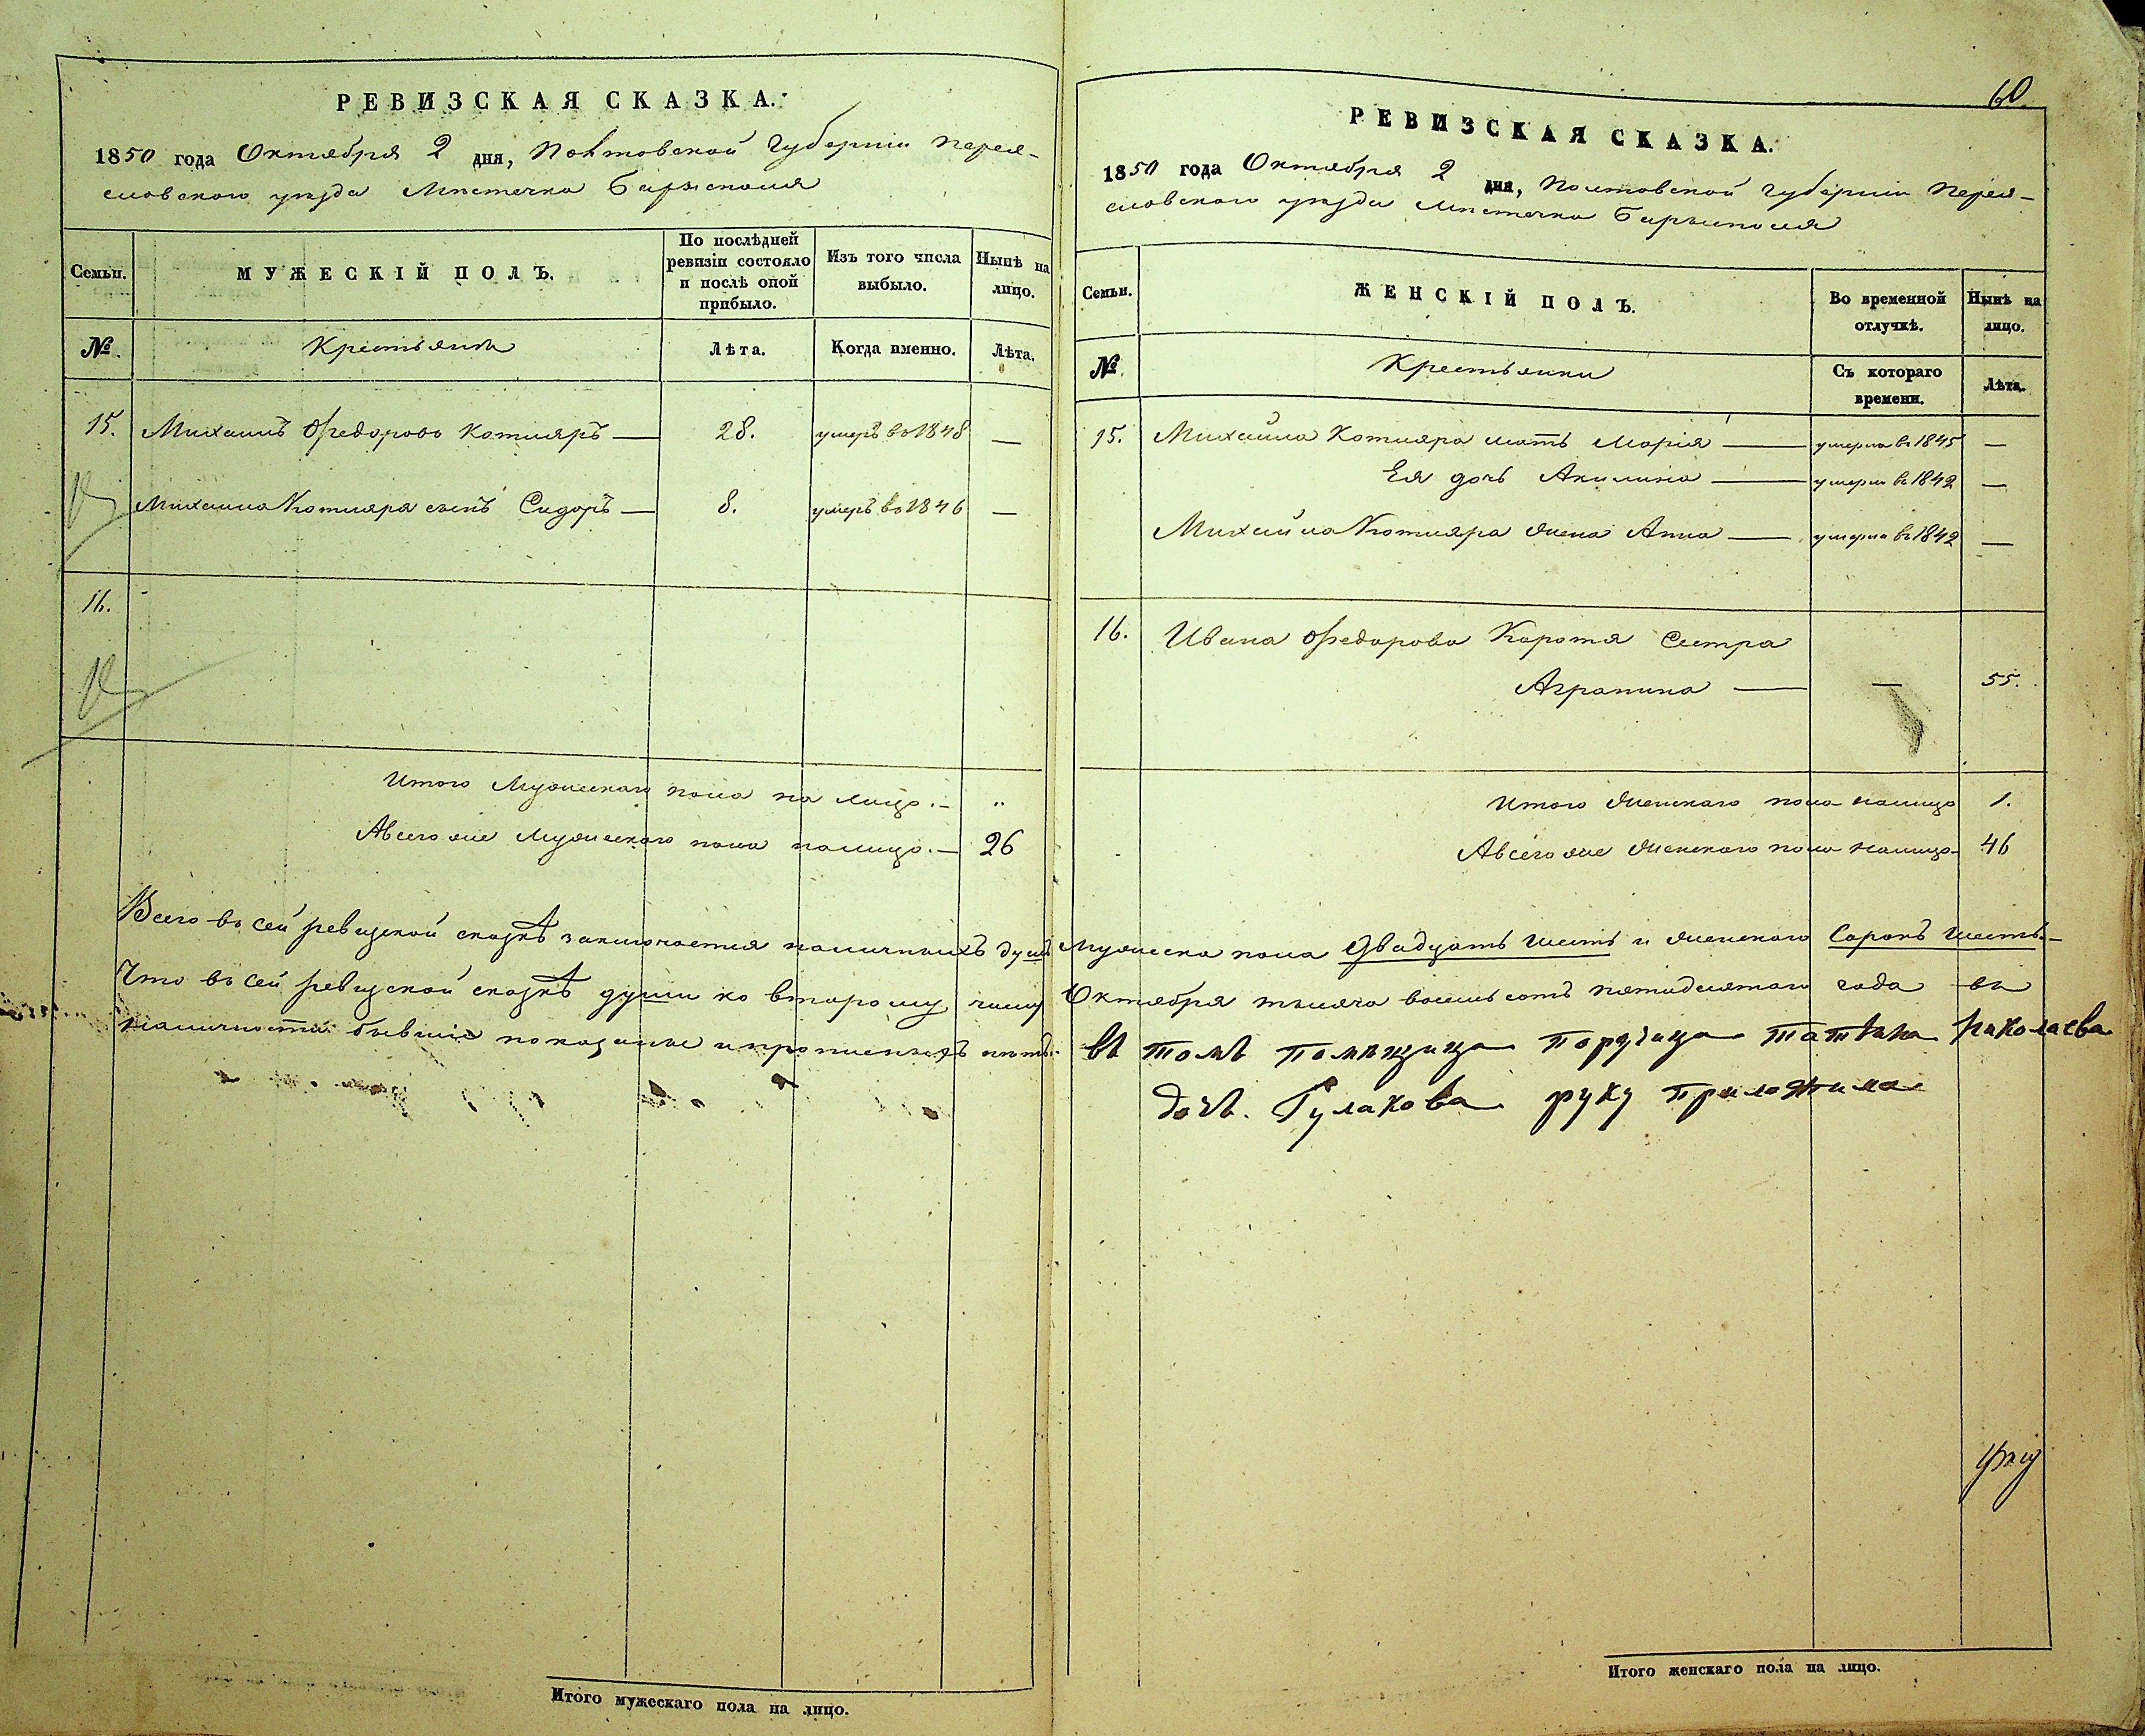 РЕВИЗСКАЯ СКАЗКА.
1850 года Октября 2 дня, Полтовской Губерніи Перея-
словского уѣзда Мѣстечка Барысполя
Семьи.
МУЖЕСКІЙ ПОЛЪ.
По послѣдней ревизіи состояло и послѣ оной прибыло.
Изъ того числа выбыло.
Нынѣ на лицо.
№.
Крестьяня
Лѣта.
Когда именно.
Лѣта.
15. Михаилъ Федоровъ Котляръ — 28. умеръ въ 1848 —
Михаила Котляра сынъ Сидоръ — 8. умеръ въ 1846 —
16.
Итого Мужескаго пола на лицо. — „
А всего же Мужескаго пола налицо. — 26
60
РЕВИЗСКАЯ СКАЗКА.
1850 года Октября 2 дня, Полтовской Губерніи Перея-
словского уѣзда Мѣстечка Барысполя
Семьи.
ЖЕНСКІЙ ПОЛЪ.
Во временной отлучкѣ.
Нынѣ на лицо.
№.
Крестьянки
Съ котораго времени.
Лѣта.
15. Михайла Котляра мать Марія — умерла въ 1845 —
Ея дочь Акилина — умерла въ 1842 —
Михайла Котляра жена Анна — умерла въ 1842 —
16. Ивана Федорова Коротя Сестра
Аграпина — — 55.
Итого женскаго пола налицо 1.
А всего же женскаго пола налицо — 46
Всего въ сей ревизской сказкѣ заключается наличныхъ душъ Мужеска пола Двадцать шесть и женскаго Сорокъ шесть. —
Что въ сей ревизской сказкѣ души ко второму числу Октября тысяча восемьсотъ пятидесятаго года въ
наличности бывшіе показаны и прописныхъ нѣтъ. въ томъ помѣщица поручица Татѣяна Николаева
дочь. Гулакова руку приложила
Итого мужескаго пола на лицо.
Итого женскаго пола на лицо.